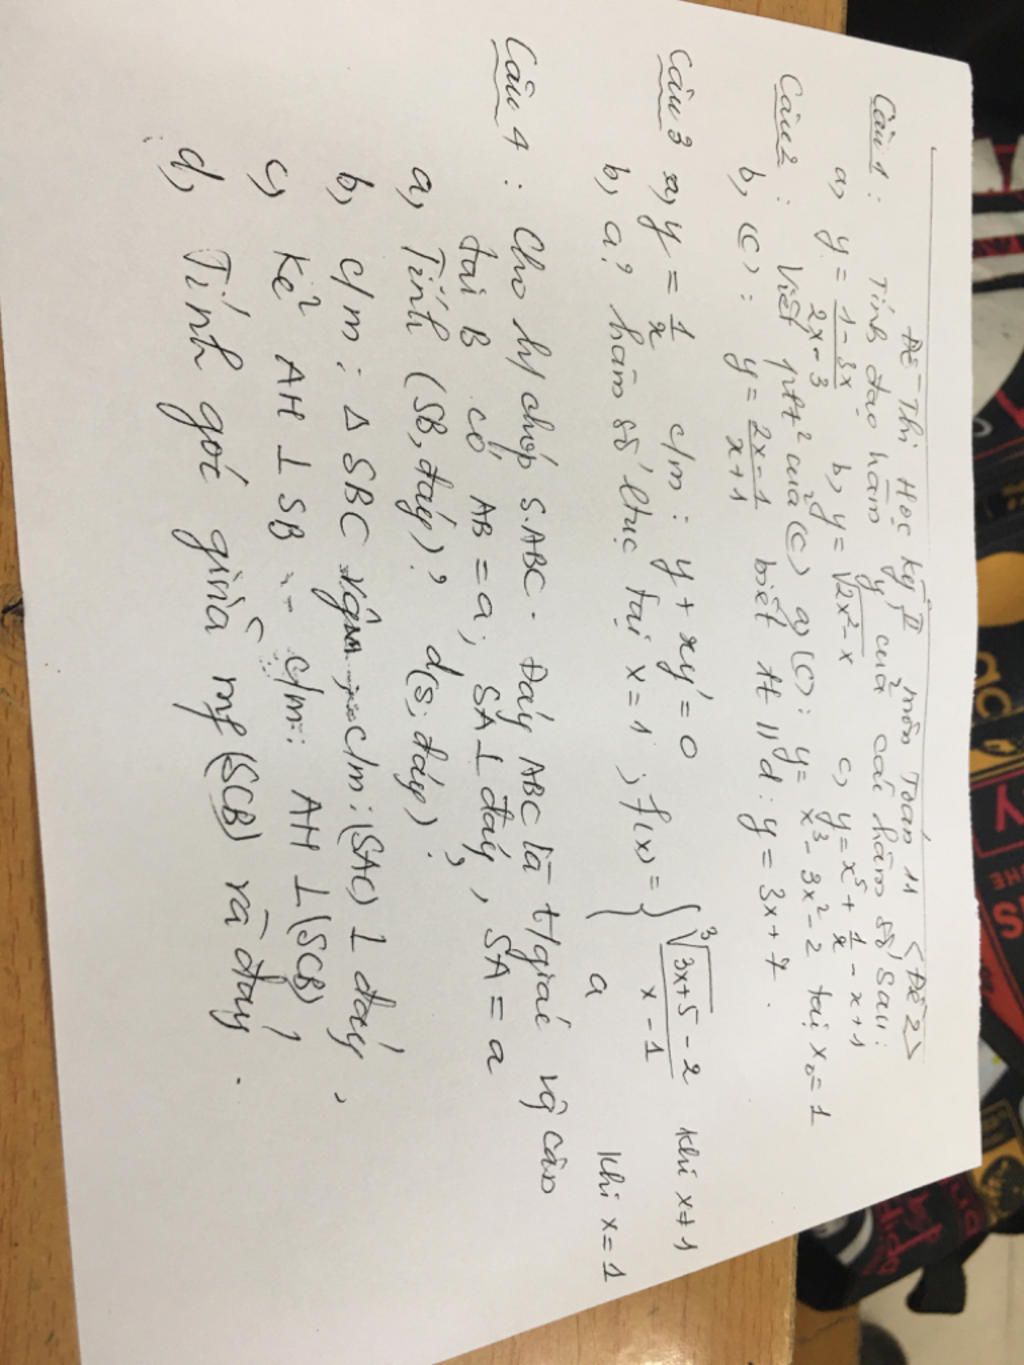 Đề Thi Học kỳ II môn Toán 11 <Đề 2>
Câu 1: Tính đạo hàm y' của các hàm số sau:
a, y = \frac{1-3x}{2x-3} b, y = \sqrt{2x²-x} c, y = x⁵ + \frac{1}{x} - x+1
Câu 2: Viết ptt² của (C) a, (C): y = x³-3x²-2 tại x₀=1
b, (C): y = \frac{2x-1}{x+1} biết tt // d: y = 3x+7.
Câu 3 a, y = \frac{1}{x} c/m: y + xy' = 0
b, a? hàm số ltục tại x=1; f(x) = { \frac{\sqrt[3]{3x+5}-2}{x-1} khi x≠1
a khi x=1
Câu 4: Cho h/chóp S.ABC. Đáy ABC là t/giác vg cân
tại B có AB=a; SA⊥đáy, SA=a
a, Tính (SB, đáy)? d(S; đáy)?
b, c/m: Δ SBC vg c/m: (SAC) ⊥ đáy,
c, kẻ AH ⊥ SB c/m: AH ⊥ (SCB)
d, Tính góc giữa mf (SCB) và đáy.
SHE
S